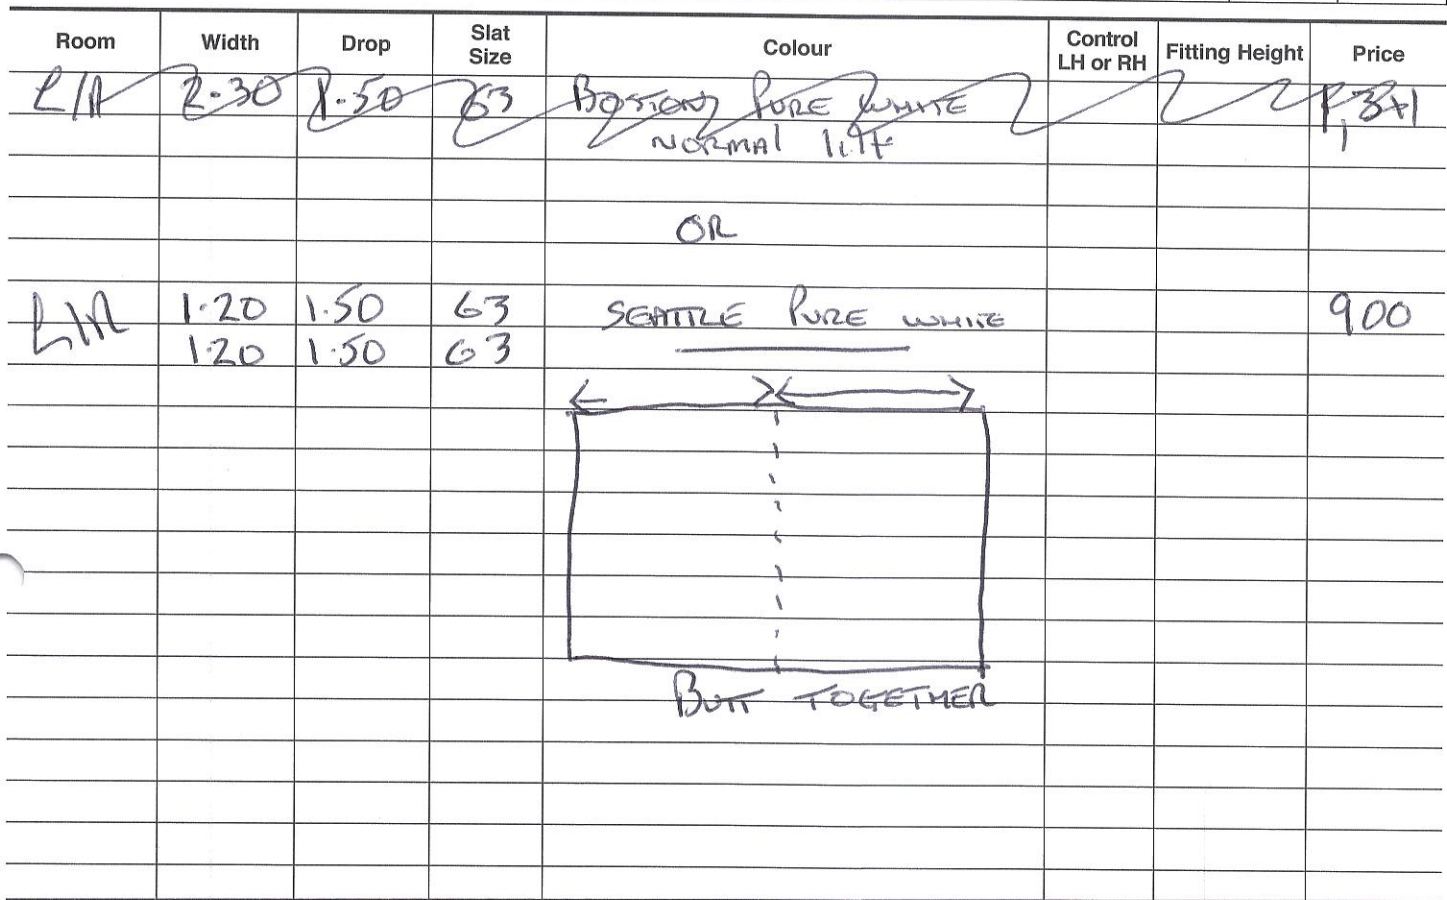 Room Width Drop Slat Size Colour Control LH or RH Fitting Height Price
L/R 2.30 1.50 63 BOSTON PURE WHITE
NORMAL lift
OR
L/R 1.20 1.50 63 SEATTLE PURE WHITE 900
1.20 1.50 63
BUTT TOGETHER